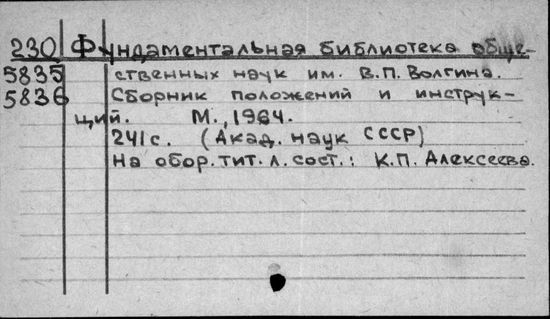 230 Фундаментальная библиотека обще-
5835 ственных наук им. В.П. Волгина.
5836 Сборник положений и инструк-
ций. М., 1964.
241 с. (Акад. наук СССР)
На обор. тит. л. сост.: К.П. Алексеева.